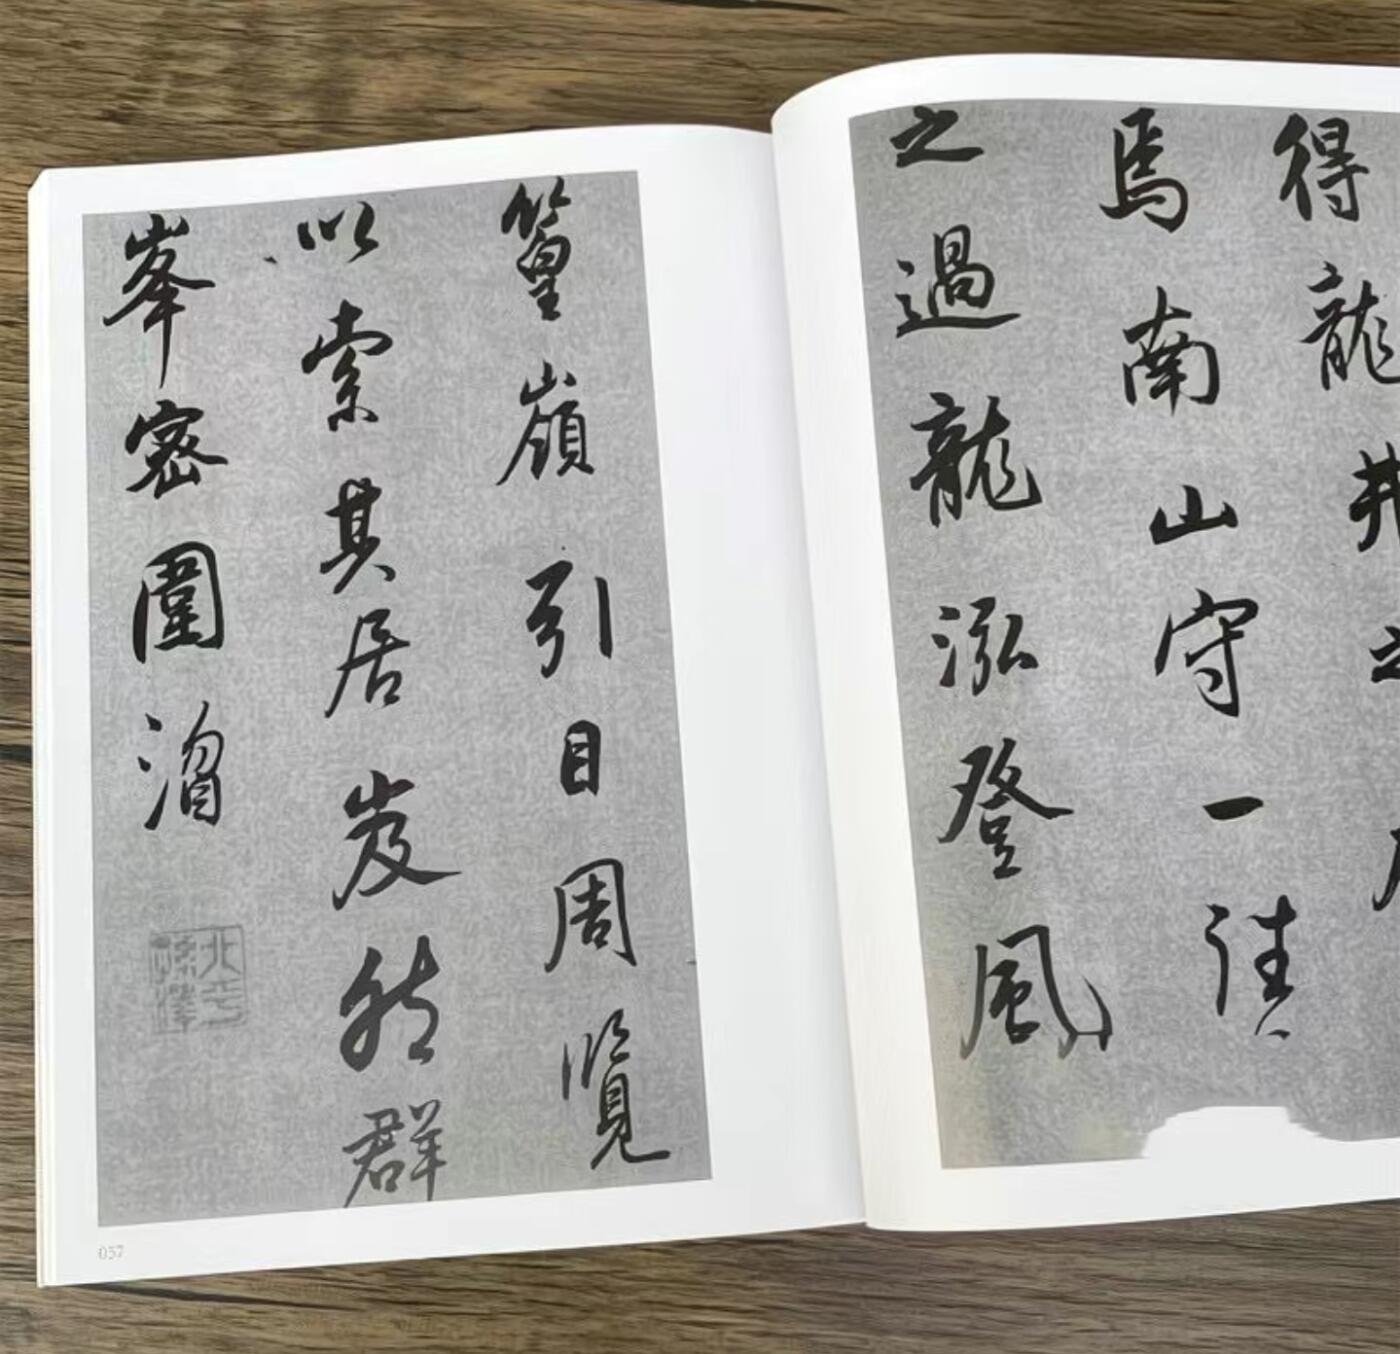 得龍井之
焉南山守一往
之過龍泓登風
篁嶺引目周覽
以索其居岌然群
峯密圍溜
北平
057